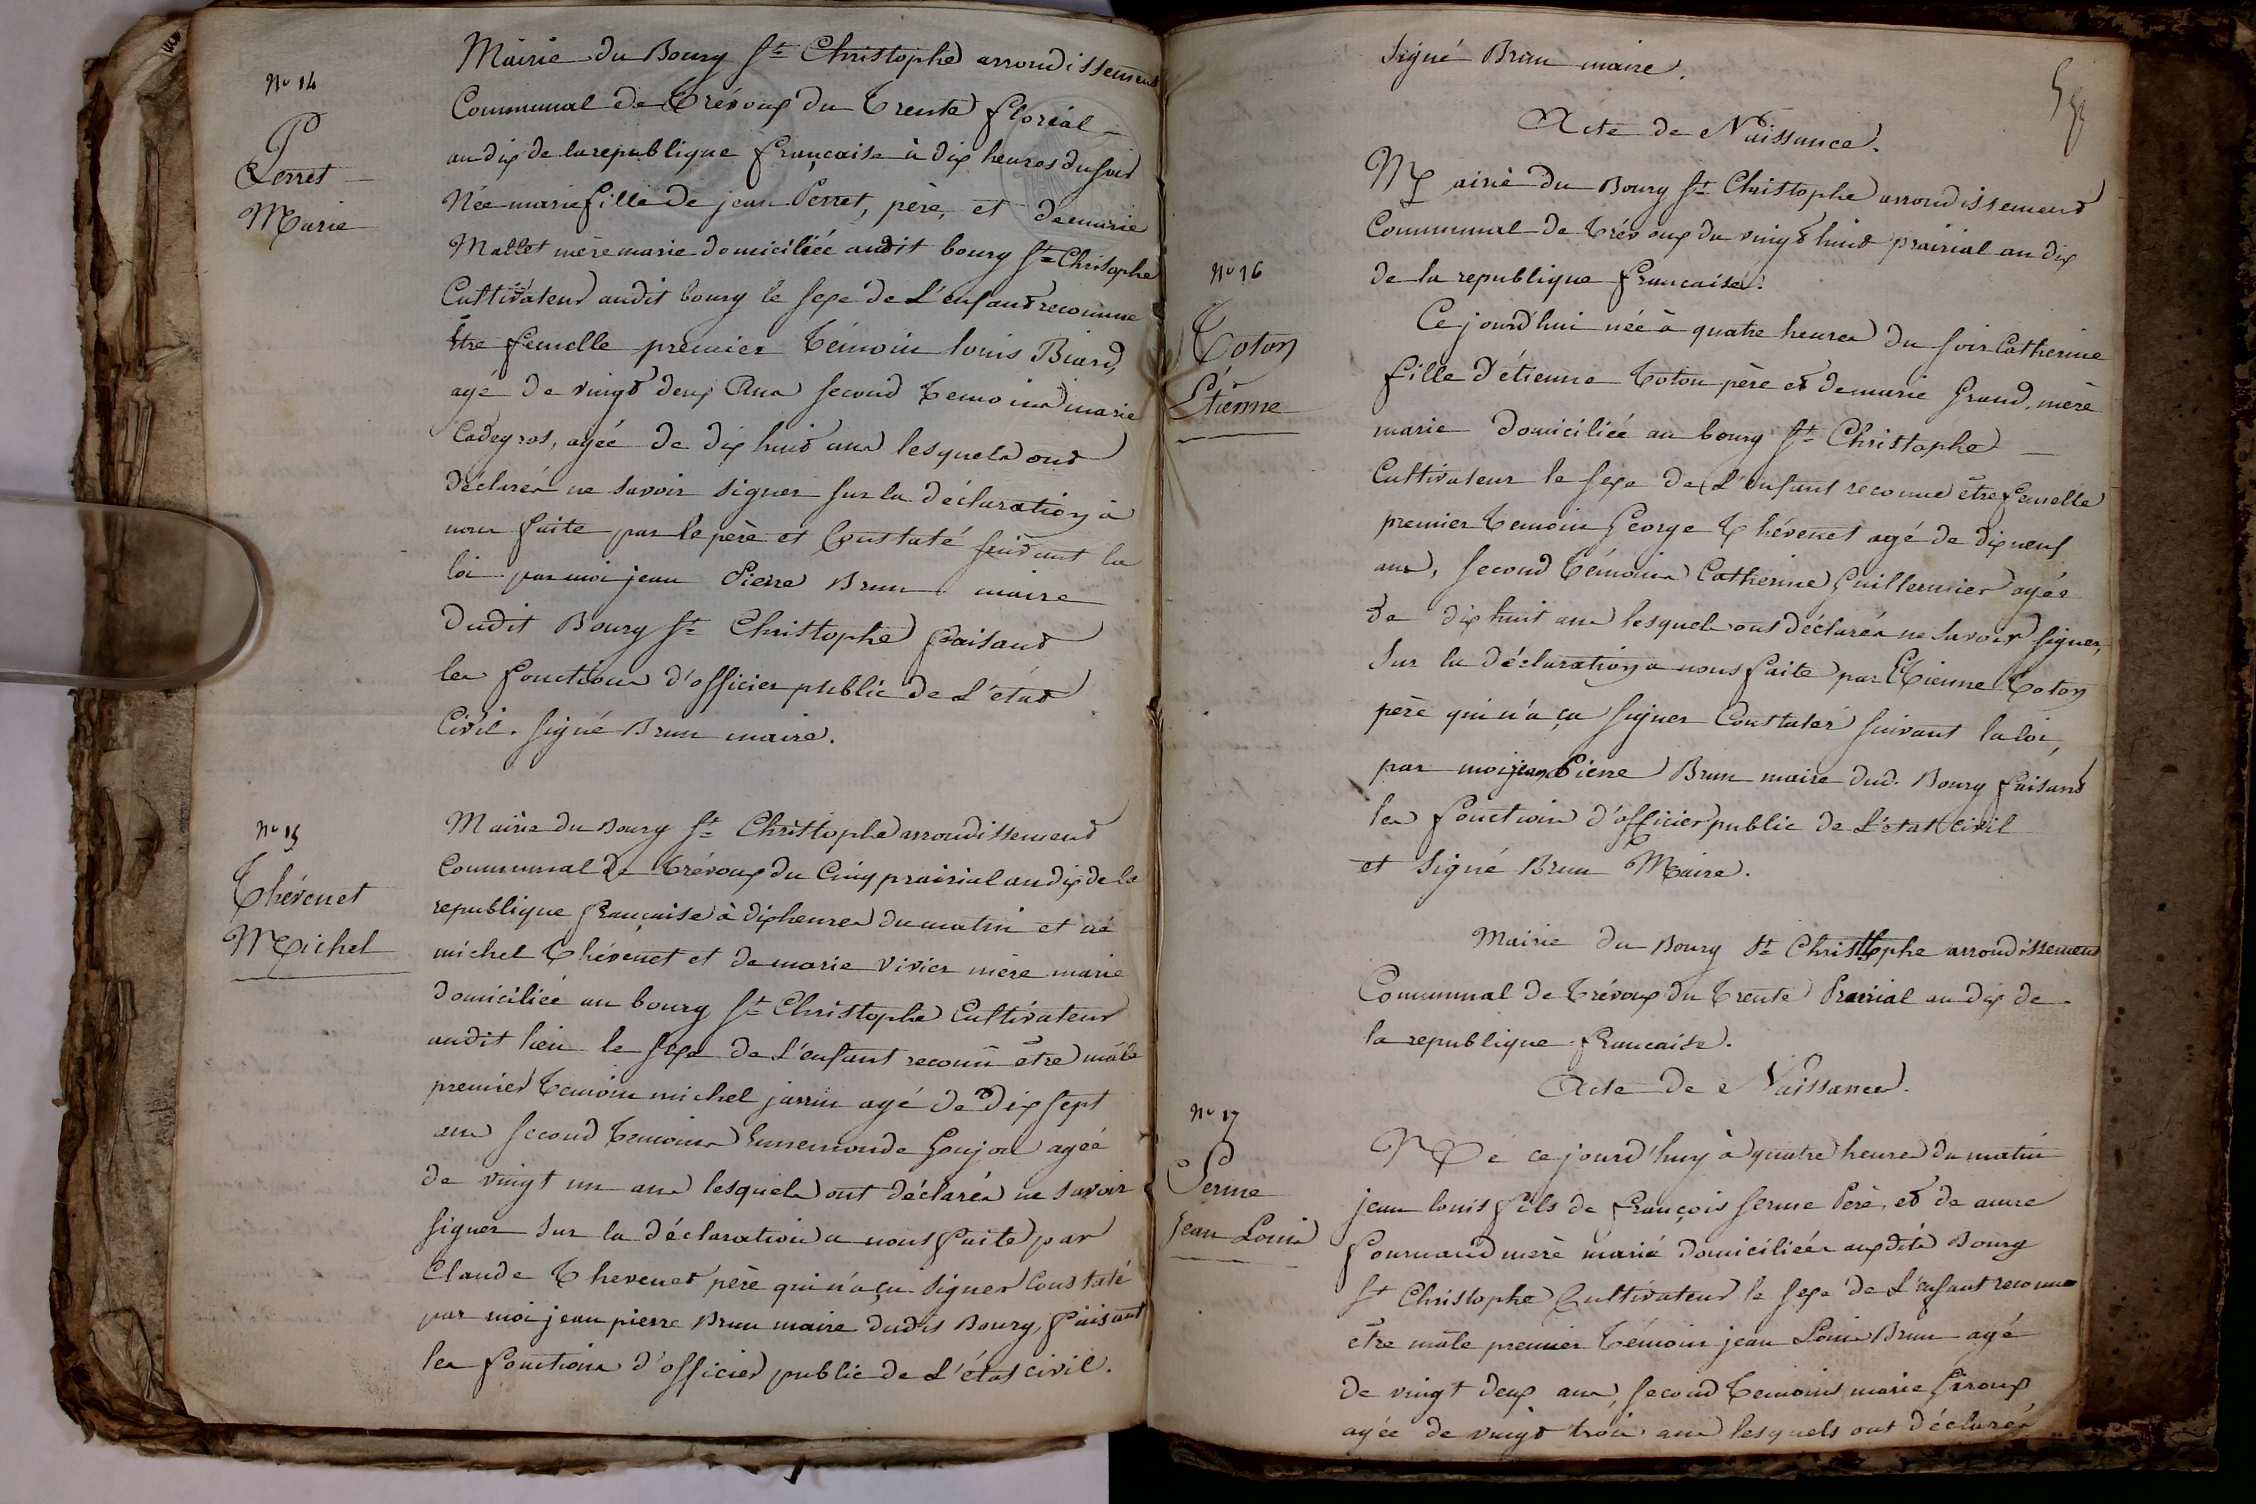 Nº 14
Perret
Marie
Mairie du Bourg St Christophe arrondissement
Communal de Trévoux du trente floréal
an dix de la republique française à dix heures du soir
Née marie fille de jean Perret, père, et de marie
Mallet mère marie domiciliée audit bourg St Christophe
Cultivateur audit bourg le sexe de L'enfant reconnue
être femelle premier témoin louis Biard,
agé de vingt deux Ans second temoins marie
Cadeyros, agée de dix huit ans lesquels ont
déclarés ne savoir signer sur la déclaration à
nous faite par le père et Constaté suivant la
loi par moi jean Pierre Brun maire
dudit Bourg St Christophe faisant
les fonctions d'officier public de L'état
Civil. signé Brun maire.
Nº 15
Thévenet
Michel
Mairie du Bourg St Christophe arrondissement
Communal de Trévoux du Cinq prairial an dix de la
republique française à dix heures du matin et né
michel Thévenet et de marie vivier mère marie
domiciliée au bourg St Christophe Cultivateur
audit lieu le sexe de L'enfant reconnu être mâle
premier temoin michel jarrin agé de dix sept
ans second temoins Ennemonde Goujon agée
de vingt un ans lesquels ont déclarés ne savoir
signer sur la déclaration a nous faite par
Claude Thevenet père qui n'a çu signer Constaté
par moi jean pierre Brun maire dudit Bourg, faisant
les fonctions d'officier public de L'état civil.
signé Brun maire.
Acte de Naissance.
Mairie du Bourg St Christophe arrondissement
Communal de Trévoux du vingt huit prairial an dix
de la republique francaise.
Nº 16
Toton
Etienne
Ce jourd'hui née à quatre heures du soir Catherine
fille d'étienne Toton père et de marie Grand, mère
marie domiciliée au bourg St Christophe
Cultivateur le sexe de L'enfant reconnue être femelle
premier temoin George Thévenet agé de dix neuf
ans, second témoins Catherine Guillermier agée
de dix huit ans lesquels ont déclarés ne savoir signer,
sur la déclaration a nous faite par Etienne Toton
père qui n'a çu signer Constater suivant la loi,
par moi jean Pierre Brun maire dud. Bourg faisant
les fonctions d'officier public de L'état civil
et signé Brun Maire.
Mairie du Bourg St Christophe arrondissement
Communal de Trévoux du trente Prairial an dix de
la republique francaise.
Acte de Naissance.
Nº 17
Serme
Jean Louis
Né ce jourd'huy à quatre heures du matin
jean louis fils de françois serme Père, et de anne
fournand mère marié domiciliées auxdits Bourg
St Christophe Cultivateur le sexe de L'enfant reconnu
être mâle premier témoin jean Louis Brun agé
de vingt deux ans, second temoins marie Giroux
agée de vingt trois ans lesquels ont déclarés